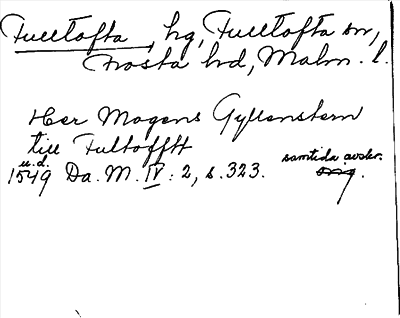 Fulltofta, hg, Fulltofta sn,
Frosta hd, Malm. l.
Her Mogens Gyllenstern
till Fultofftt
u.d.
1549 Da. M. IV: 2, s. 323.
samtida avskr.